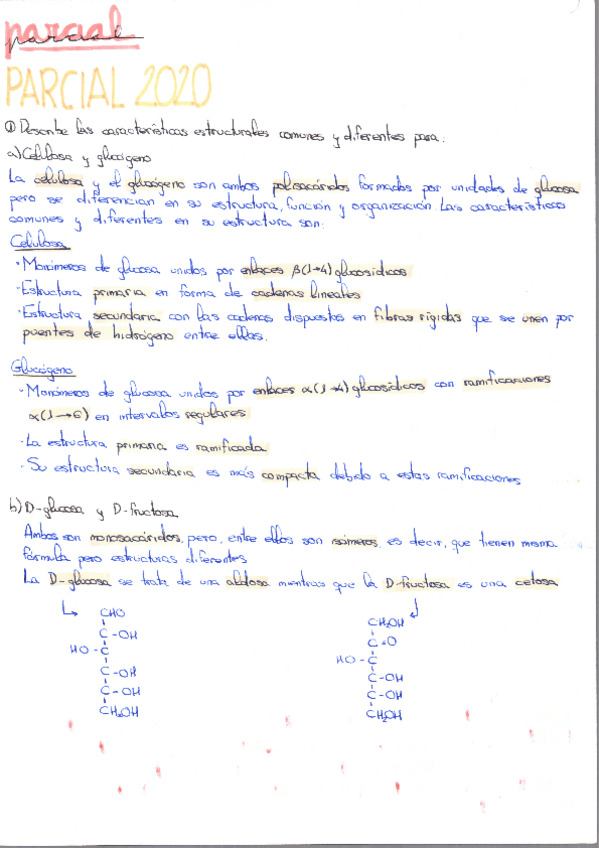 parcial
PARCIAL 2020
① Describe las características estructurales comunes y diferentes para:
a) Celulosa y glucógeno
La celulosa y el glucógeno son ambos polisacáridos formados por unidades de glucosa
pero se diferencian en su estructura, función y organización. Las características
comunes y diferentes en su estructura son:
Celulosa
· Monómeros de glucosa unidos por enlaces β(1→4) glucosídicos
· Estructura primaria en forma de cadenas lineales
· Estructura secundaria con las cadenas dispuestas en fibras rígidas que se unen por
puentes de hidrógeno entre ellas.
Glucógeno
· Monómeros de glucosa unidos por enlaces α(1→4) glucosídicos con ramificaciones
α(1→6) en intervalos regulares
· La estructura primaria es ramificada
· Su estructura secundaria es más compacta debido a estas ramificaciones
b) D-glucosa y D-fructosa
Ambos son monosacáridos, pero, entre ellos son isómeros, es decir, que tienen misma
fórmula pero estructuras diferentes
La D-glucosa se trata de una aldosa mientras que la D-fructosa es una cetosa
CHO
C-OH
HO-C
C-OH
C-OH
CH₂OH
CH₂OH
C=O
HO-C
C-OH
C-OH
CH₂OH